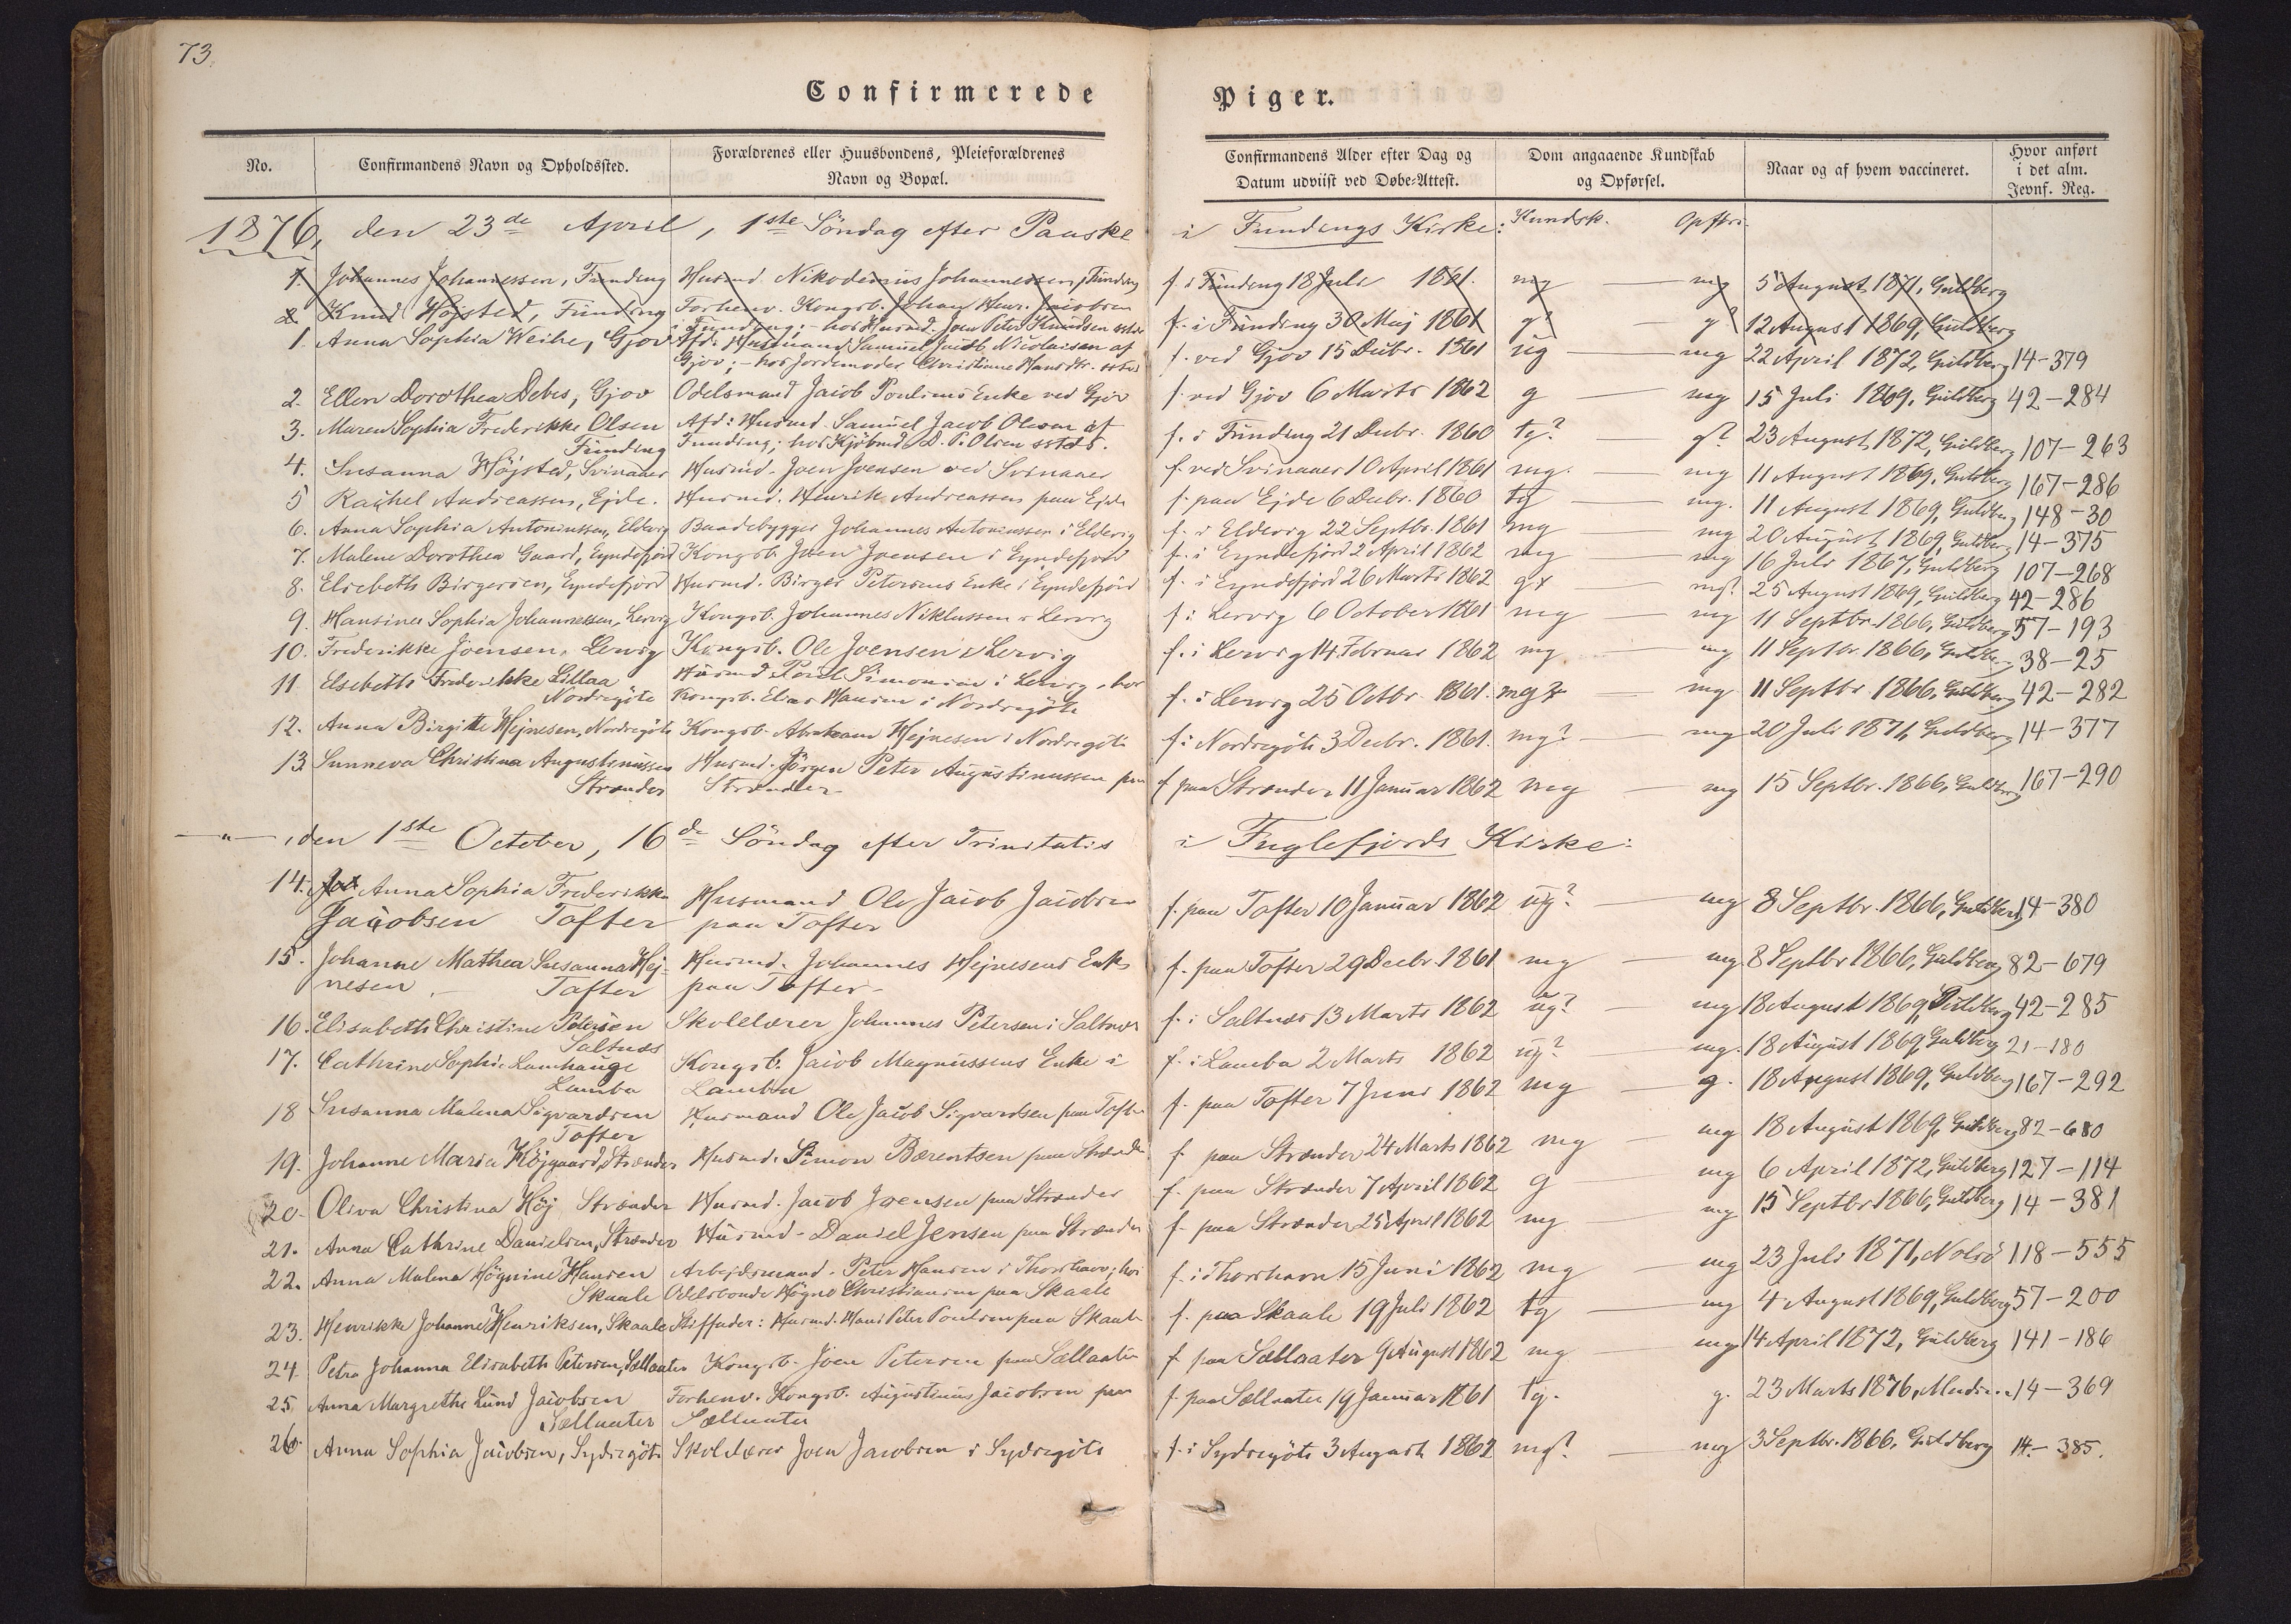 73.
Confirmerede Piger.
No. Confirmandens Navn og Opholdssted. Forældrenes eller Huusbondens, Pleieforældrenes Navn og Bopæl. Confirmandens Alder efter Dag og Datum udviist ved Døbe-Attest. Dom angaaende Kundskab og Opførsel. Naar og af hvem vaccineret. Hvor anført i det alm. Jevnf. Reg.
1876, den 23de April, 1ste Söndag efter Paaske i Fundings Kirke: Kundsk. Opförs.
1. Johannes Johannessen, Funding Husmd. Nikodemus Johannessen, Funding f. i Funding 18 Juli 1861. mg — mg 5 August 1871, Guldberg
2. Knud Höjsted, Funding Forhenv. Kongsb. Johan Henr. Jacobsen f. i Funding 30 Maj 1861 g? — g? 12 August 1869, Guldberg
i Funding; - hos Husmd. Joen Peter Knudsen sstds
1. Anna Sophia Weihe, Gjov Afd: Husmand Samuel Jacob Nicolaisen af f. ved Gjov 15 Decbr. 1861 ug — mg 22 April 1872, Guldberg 14-379
Gjov; - hos Jordemoder Christinne Hansdtr. sstds
2. Ellen Dorothea Debes, Gjov Odelsmand Jacob Poulsens Enke ved Gjov f. ved Gjov 6 Marts 1862 g — mg 15 Juli 1869, Guldberg 42-284
3. Maren Sophia Frederikke Olsen Afd: Husmd. Samuel Jacob Olsen af f. i Funding 21 Decbr. 1860 tg? g? 23 August 1872, Guldberg 107-263
Funding Funding; hos Kjöbmd D. P. Olsen sstds.
4. Susanna Höjsted, Svinaaer Husmd. Joen Joensen ved Svinaaer f. ved Svinaaer 10 April 1861 mg. — mg 11 August 1869, Guldberg 167-286
5 Rachel Andreassen, Ejde. Husmd. Henrik Andreassen paa Ejde f. paa Ejde 6 Decbr. 1860 tg — mg. 11 August 1869, Guldberg 148-30
6. Anna Sophia Antoniussen, Eldevig Baadebygger Johannes Antoniussen i Eldevig f. i Eldevig 22 Septbr. 1861 mg — mg 20 August 1869, Guldberg 14-375
7. Malene Dorothea Gaard, Eyndefjord Kongsb. Joen Joensen i Eyndefjord f. i Eyndefjord 2 April 1862 mg — mg 16 Juli 1867, Guldberg 107-268
8. Elsebeth Birgersen, Eyndefjord Husmd. Birger Petersens Enke i Eyndefjord f. i Eyndefjord 26 Marts 1862 g+ — mg? 25 August 1869, Guldberg 42-286
9. Hansine Sophia Johannessen, Lervig Kongsb. Johannes Niklassen i Lervig f. i Lervig 6 October 1861 mg — mg 11 Septbr. 1866, Guldberg 57-193
10. Frederikke Joensen, Lervig Kongsb. Ole Joensen i Lervig f. i Lervig 14 Februar 1862 mg — mg 11 Septbr. 1866, Guldberg 38-25
11. Elsebeth Frederikke Lillaa Husmd. Poul Simonsen i Lervig, hos f. i Lervig 25 Octbr. 1861. mg? — mg 11 Septbr. 1866, Guldberg 42-282
Nordregöte Kongsb. Elias Hansen i Nordregöte
12. Anna Birgitte Hejnesen, Nordregöte Kongsb. Abraham Hejnesen i Nordregöte f. i Nordregöte 3 Decbr. 1861. mg? — mg 20 Juli 1871, Guldberg 14-377
13. Sunneva Christina Augustinussen Husmd. Jörgen Peter Augustinussen paa f. paa Strænder 11 Januar 1862 mg — mg 15 Septbr. 1866, Guldberg 167-290
Strænder Strænder
— " — , den 1ste October, 16de Söndag efter Trinitatis i Fuglefjords Kirke:
14. Anna Sophia Frederikke Husmand Ole Jacob Jacobsen f. paa Tofter 10 Januar 1862 ug? — mg 8 Septbr. 1866, Guldberg 14-380
Jacobsen Tofter paa Tofter
15. Johanne Mathea Susanna Hej- Husmd. Johannes Hejnesens Enke f. paa Tofter 29 Decbr. 1861 mg — mg. 8 Septbr 1866, Guldberg 82-679
nesen. - Tofter paa Tofter -
16. Elisabeth Christine Petersen Skolelærer Johannes Petersen i Saltnæs f. i Saltnæs 13 Marts 1862 ug? — mg 18 August 1869, Guldberg 42-285
Saltnæs
17. Cathrine Sophie Lamhauge Kongsb. Jacob Magnussens Enke i f. i Lamba 2 Marts 1862 ug? — mg. 18 August 1869, Guldberg 21-180
Lamba Lamba
18 Susanna Malena Sigvardsen Husmand Ole Jacob Sigvardsen paa Tofter f. paa Tofter 7 Juni 1862 mg — g. 18 August 1869, Guldberg 167-292
Tofter
19. Johanne Maria Höjgaard, Strænder Husmd. Simon Bærentsen paa Strænder f. paa Strænder 24 Marts 1862 mg — mg 18 August 1869, Guldberg 82-680
20. Oliva Christina Höj Strænder Husmd. Jacob Joensen paa Strænder f. paa Strænder 7 April 1862 g — mg 6 April 1872, Guldberg 127-114
21. Anna Cathrine Danielsen, Strænder Husmd. Daniel Jensen paa Strænder f. paa Strænder 25 April 1862 mg — mg 15 Septbr 1866, Guldberg 14-381
22. Anna Malena Högnine Hansen Arbejdsmand Peter Hansen i Thorshavn; hos f. i Thorshavn 15 Juni 1862 mg — mg 23 Juli 1871, Nolsö 118-555
Skaale Odelsbonde Högne Christiansen paa Skaale
23. Henrikke Johanne Henriksen, Skaale Stiffader: Husmd. Hans Peter Poulsen paa Skaale f. paa Skaale 19 Juli 1862 tg — mg 4 August 1869, Guldberg 57-200
24. Petra Johanna Elisabeth Petersen, Sællaater Kongsb. Joen Petersen paa Sællaater f. paa Sællaater 9 August 1862 mg — mg 14 April 1872, Guldberg 141-186
25. Anna Margrethe Lund Jacobsen Forhenv. Kongsb. Augustinus Jacobsen paa f. paa Sællaater 19 Januar 1861 tg. — g. 23 Marts 1876, 14-369
Sællaater Sællaater
26. Anna Sophia Jacobsen, Sydregöte Skolelærer Joen Jacobsen i Sydregöte f. i Sydregöte 3 August 1862 mg? — mg 3 Septbr. 1866, Guldberg 14-385.